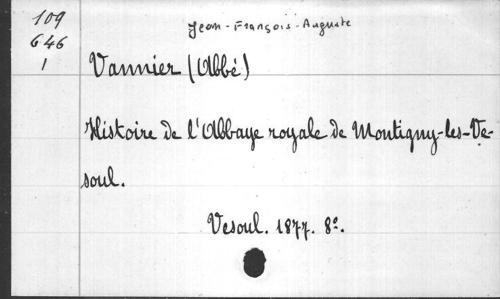 109
646
1
Jean-François-Auguste
Vannier (Abbé)
Histoire de l'Abbaye royale de Montigny-les-Ve-
soul.
Vesoul. 1877. 8º.